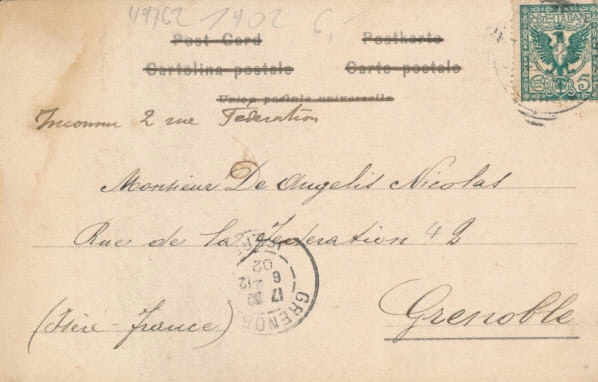 49762 1902 6,
Post Card Postkarte
Cartolina postale Carte postale
Union postale universelle
POSTE ITALIANE
5
Inconnu 2 rue Féderation
Monsieur De Angelis Nicolas
Rue de la Federation 42
GRENOBLE
17
6
02
(Isère-France)
Grenoble